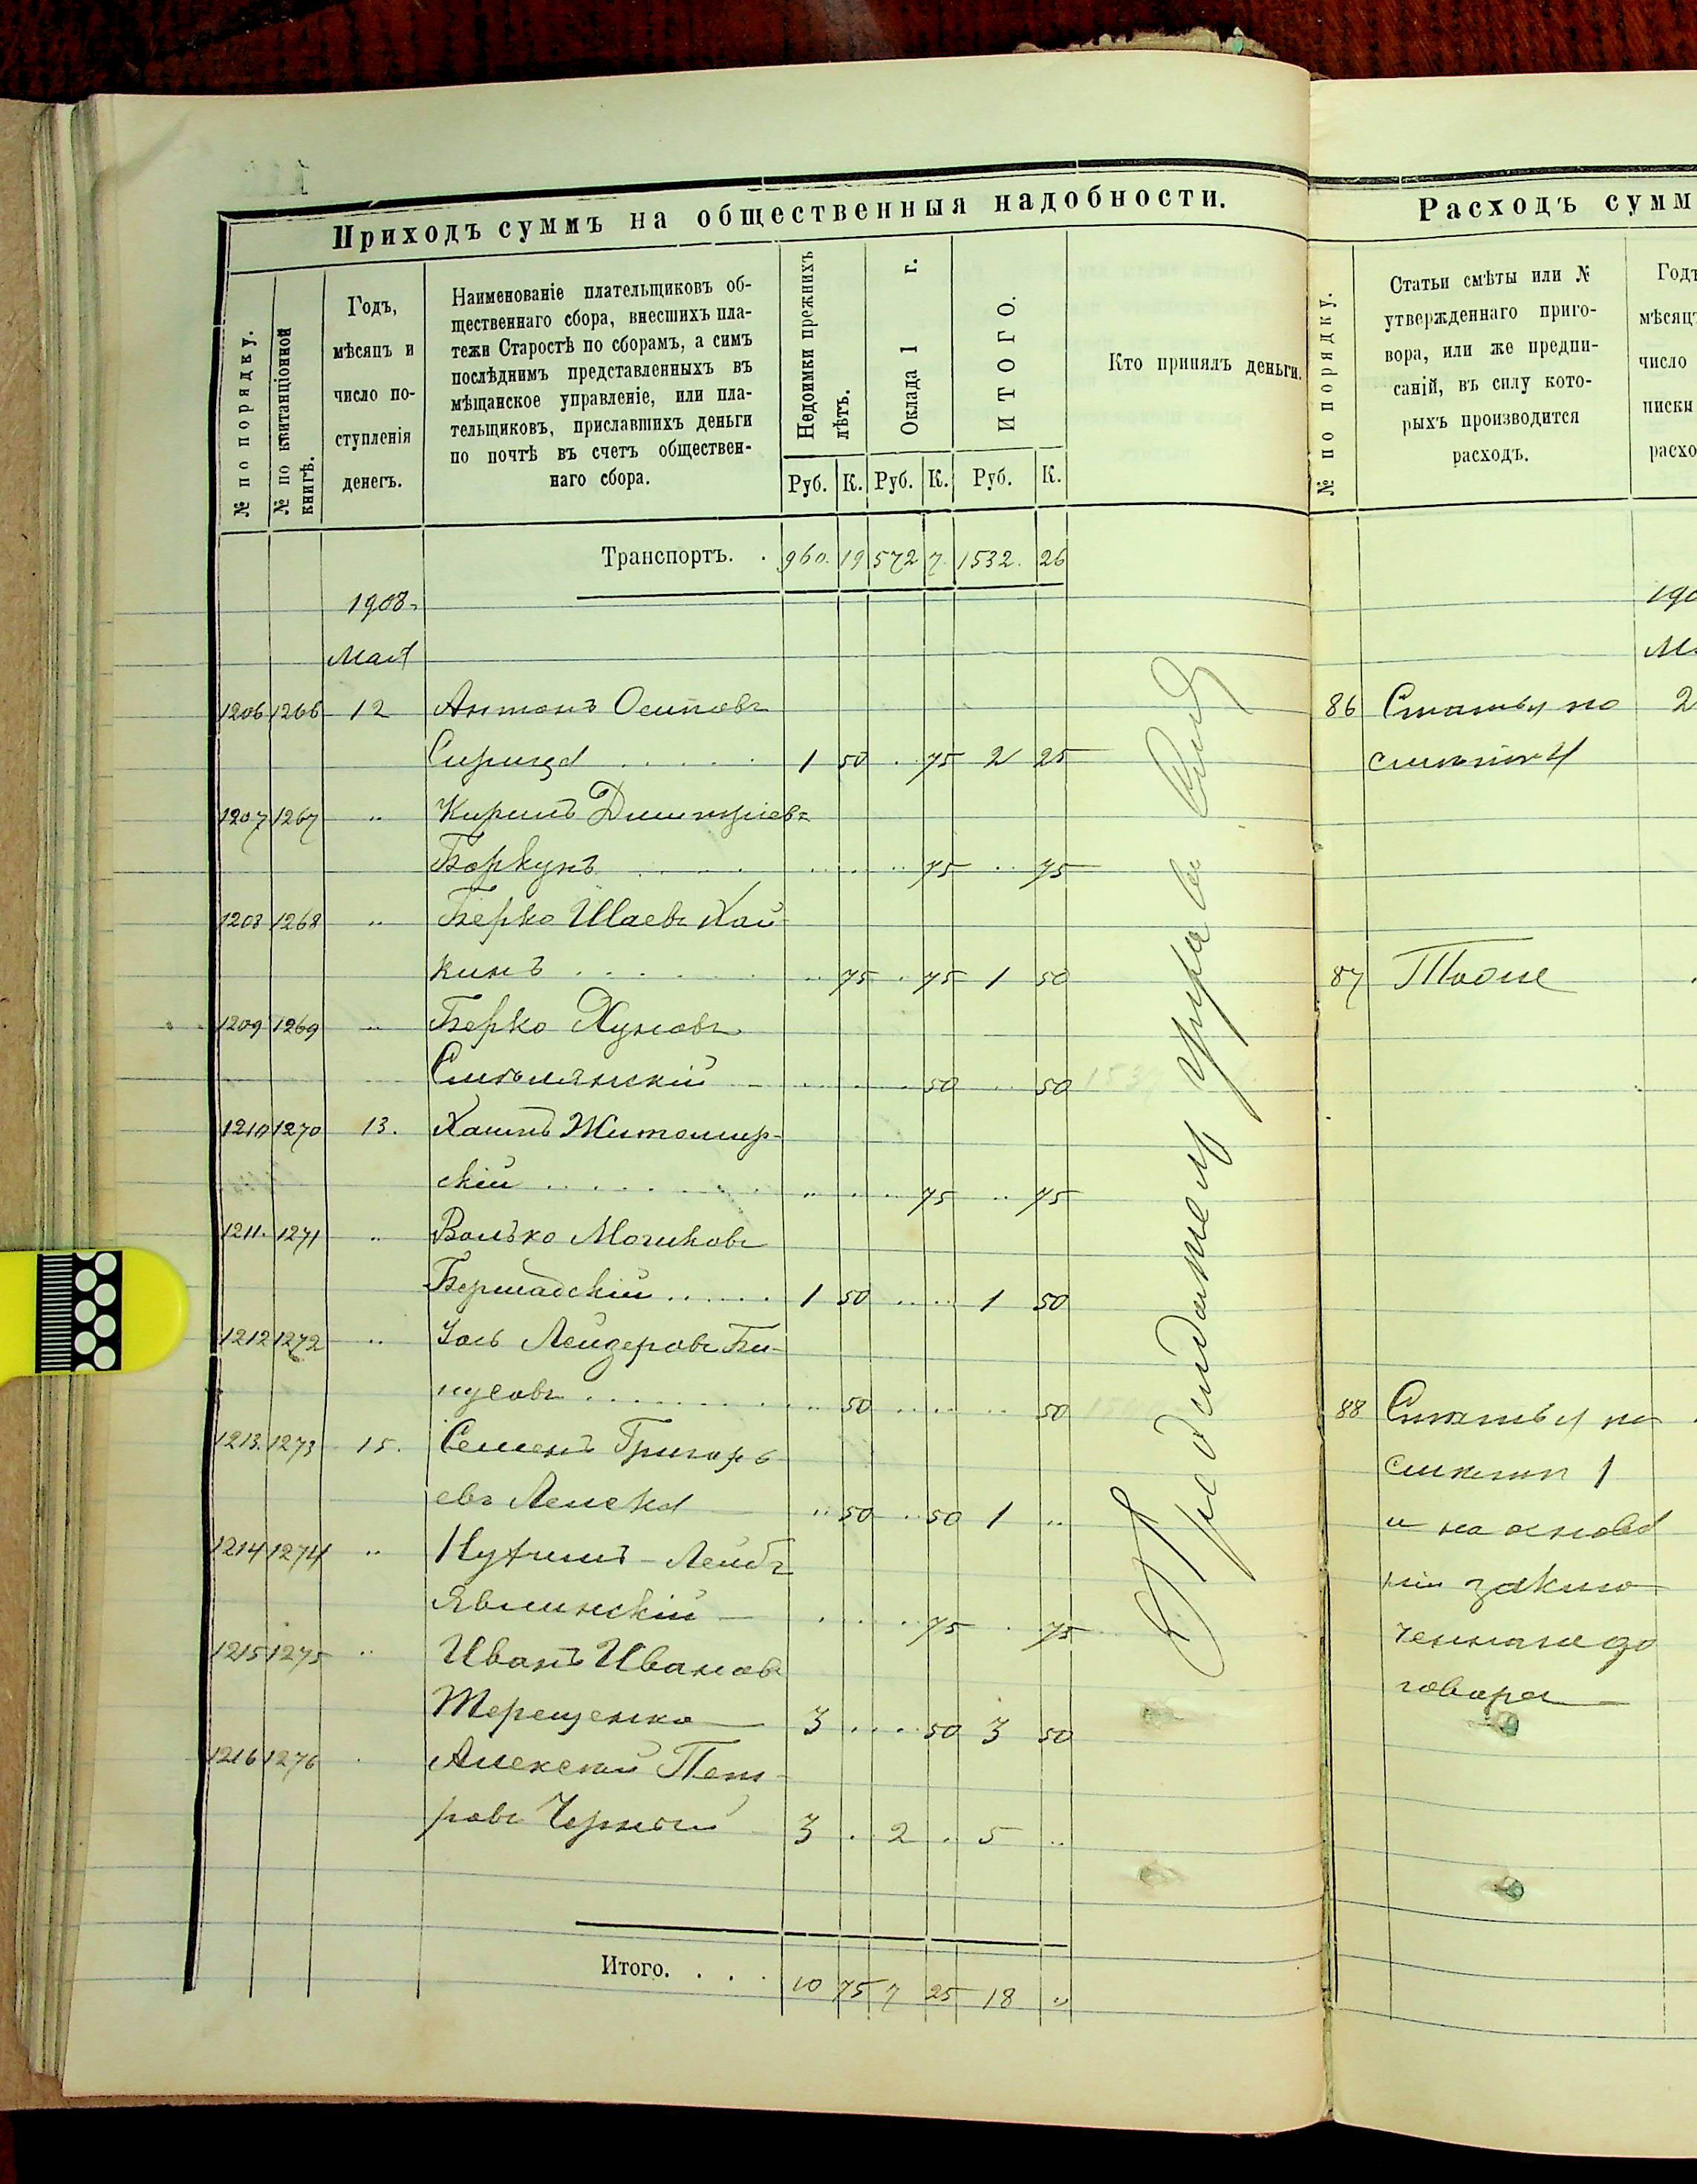 Приходъ суммъ на общественныя надобности.
№ по порядку.
№ по квитанціонной книгѣ.
Годъ,
мѣсяцъ и
число по-
ступленія
денегъ.
Наименованіе плательщиковъ об-
щественнаго сбора, внесшихъ пла-
тежи Старостѣ по сборамъ, а симъ
послѣднимъ представленныхъ въ
мѣщанское управленіе, или пла-
тельщиковъ, приславшихъ деньги
по почтѣ въ счетъ обществен-
наго сбора.
Недоимки прежнихъ лѣтъ.
Оклада 1 г.
ИТОГО.
Руб. К. Руб. К. Руб. К.
Кто принялъ деньги.
Транспортъ. . 960. 19 572 7. 1532. 26
1908.
Мая
1206 1266 12 Антонъ Осиповъ
Сирица . . . . . 1 50 . 75 2 25
1207 1267 " Кирилъ Дмитріевъ
Боркунъ . . . . 75 .. 75
1208 1268 " Берко Шаевъ Хай-
кинъ . . . . . . .. 75 . 75 1 50
1209 1269 " Берко
Смолянскій . . . . 50 .. 50
1210 1270 13. Хаимъ Житомир-
скій . . . . . . . .. . . . 75 .. 75
1211. 1271 " Волько Мошковъ
Бершадскій . . . . . . 1 50 . . . . 1 50
1212 1272 " Іось Лейзеровъ Би-
нусовъ . . . . . . . . .. 50 . . . . .. 50
1213. 1273 15. Семенъ Григорь
евъ Лемека .. 50 .. 50 1 ..
1214 1274 " Нухимъ-Лейбъ
Явлинскій . . . . 75 . 75
1215 1275 " Иванъ Ивановъ
Терещенко 3 . . . 50 3 50
1216 1276 . Алексѣй Пет-
ровъ Черный 3 . 2 . 5 ..
Итого. . . . 10 75 7 25 18 "
Расходъ сумм
№ по порядку.
Статьи смѣты или №
утвержденнаго приго-
вора, или же предпи-
саній, въ силу кото-
рыхъ производится
расходъ.
Годъ
мѣсяцъ
число
писки
расхо
190
М
86 Статья по 2
смѣтѣ 4
87 Тоже
88 Статья по
смѣтѣ 1
и на основа
ніи заклю
ченнаго до
говора